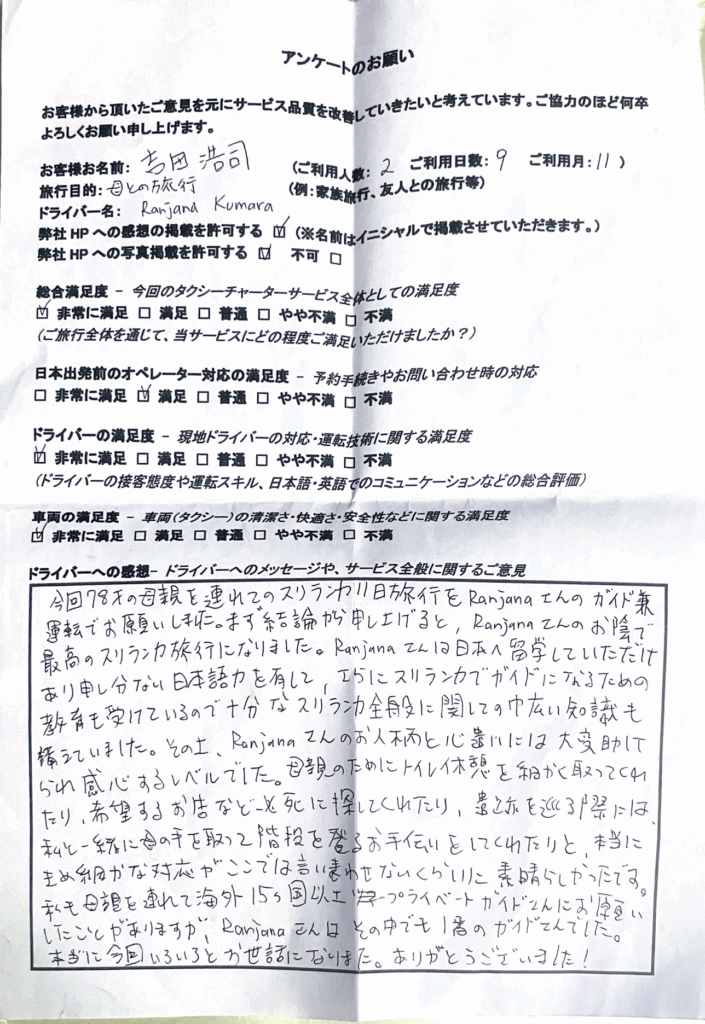 アンケートのお願い
お客様から頂いたご意見を元にサービス品質を改善していきたいと考えています。ご協力のほど何卒
よろしくお願い申し上げます。
お客様お名前: 吉田 浩司 (ご利用人数: 2 ご利用日数: 9 ご利用月: 11 )
旅行目的: 母との旅行 (例:家族旅行、友人との旅行等)
ドライバー名: Ranjana Kumara
弊社 HP への感想の掲載を許可する ☑ (※名前はイニシャルで掲載させていただきます。)
弊社 HP への写真掲載を許可する ☑ 不可 □
総合満足度 – 今回のタクシーチャーターサービス全体としての満足度
☑ 非常に満足 □ 満足 □ 普通 □ やや不満 □ 不満
(ご旅行全体を通じて、当サービスにどの程度ご満足いただけましたか?)
日本出発前のオペレーター対応の満足度 – 予約手続きやお問い合わせ時の対応
□ 非常に満足 ☑ 満足 □ 普通 □ やや不満 □ 不満
ドライバーの満足度 – 現地ドライバーの対応・運転技術に関する満足度
☑ 非常に満足 □ 満足 □ 普通 □ やや不満 □ 不満
(ドライバーの接客態度や運転スキル、日本語・英語でのコミュニケーションなどの総合評価)
車両の満足度 – 車両(タクシー)の清潔さ・快適さ・安全性などに関する満足度
☑ 非常に満足 □ 満足 □ 普通 □ やや不満 □ 不満
ドライバーへの感想– ドライバーへのメッセージや、サービス全般に関するご意見
今回78才の母親を連れてのスリランカ11日旅行をRanjanaさんのガイド兼
運転でお願いしました。まず結論から申し上げると, Ranjanaさんのお陰で
最高のスリランカ旅行になりました。Ranjanaさんは日本へ留学していただけ
あり申し分ない日本語力を有して, さらにスリランカでガイドになるための
教育も受けているので十分なスリランカ全般に関しての巾広い知識も
備えていました。その上, Ranjanaさんのお人柄と心遣いには大変助け
られ感心するレベルでした。母親のためにトイレ休憩を細かく取ってくれ
たり, 希望するお店など必死に探してくれたり, 遺跡を巡る際には,
私と一緒に母の手を取って階段を登るお手伝いをしてくれたりと, 本当に
きめ細かな対応がここでは言い表わせないくらいに素晴らしかったです。
私も母親を連れて海外15ヶ国以上プライベートガイドさんにお願い
したことがありますが, Ranjanaさんはその中でも1番のガイドさんでした。
本当に今回いろいろとお世話になりました。ありがとうございました!